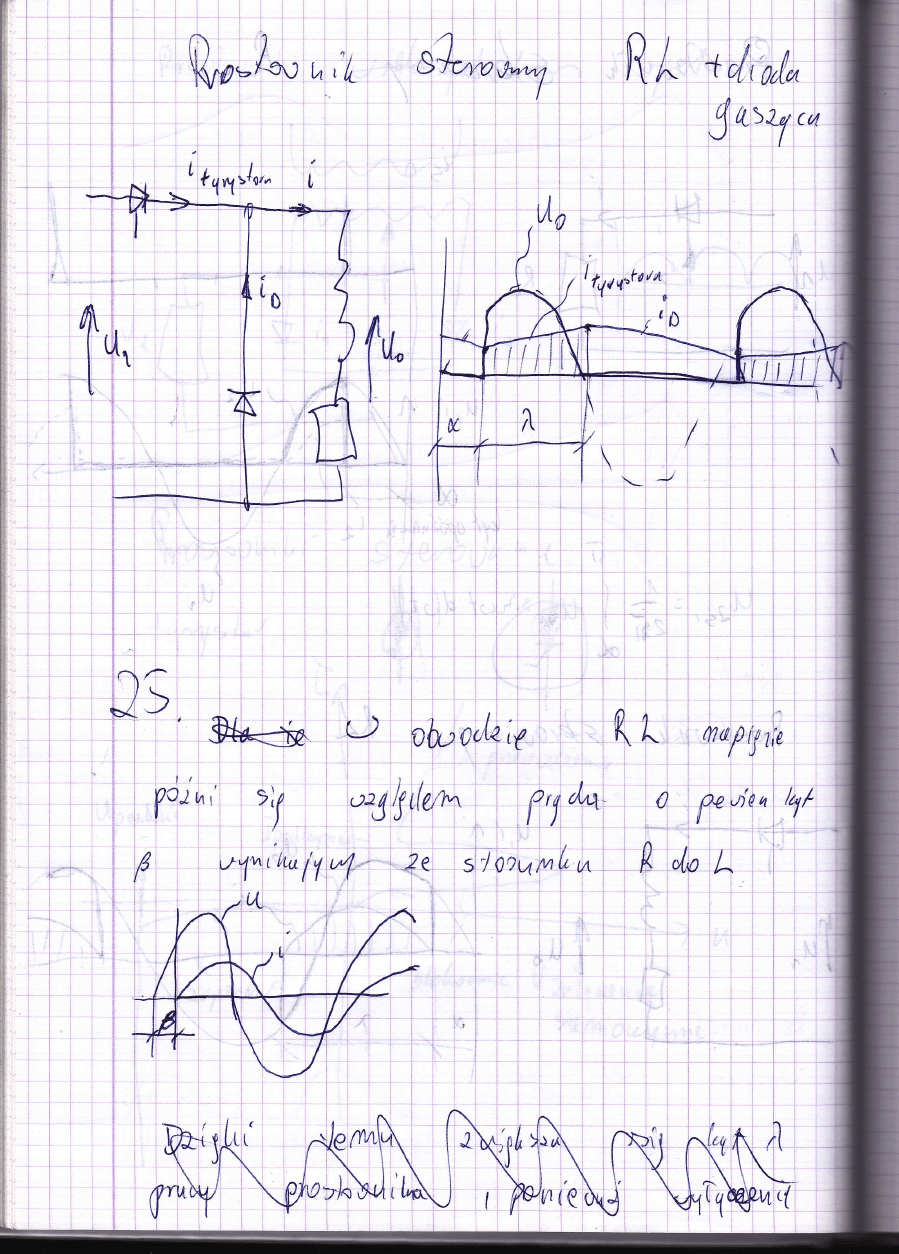 Prostownik sterowany RL + dioda
gasząca
i tyrystora
i
i D
U1
U0
U0
i tyrystora
i D
α
λ
25.
Dla ie W obwodzie RL napięcie
późni się względem prądu o pewien kąt
β wynikający ze stosunku R do L
u
i
β
Dzięki temu zwiększa się kąt λ
pracy prostownika, ponieważ